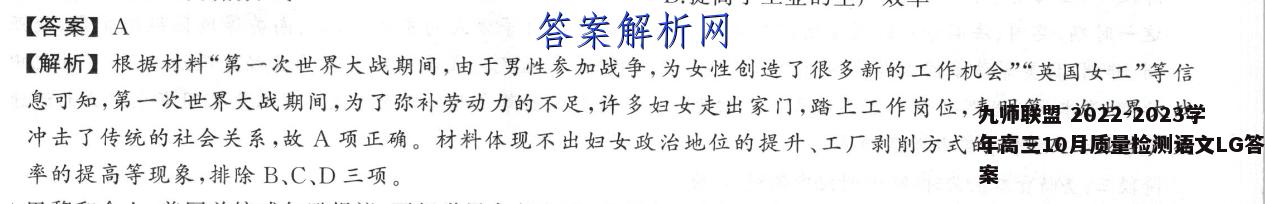 【答案】A
答案解析网
【解析】根据材料“第一次世界大战期间,由于男性参加战争,为女性创造了很多新的工作机会”“英国女工”等信
息可知,第一次世界大战期间,为了弥补劳动力的不足,许多妇女走出家门,踏上工作岗位,
冲击了传统的社会关系,故 A 项正确。材料体现不出妇女政治地位的提升、工厂剥削方式的
率的提高等现象,排除 B、C、D 三项。
九师联盟 2022-2023学
年高三10月质量检测语文LG答
案